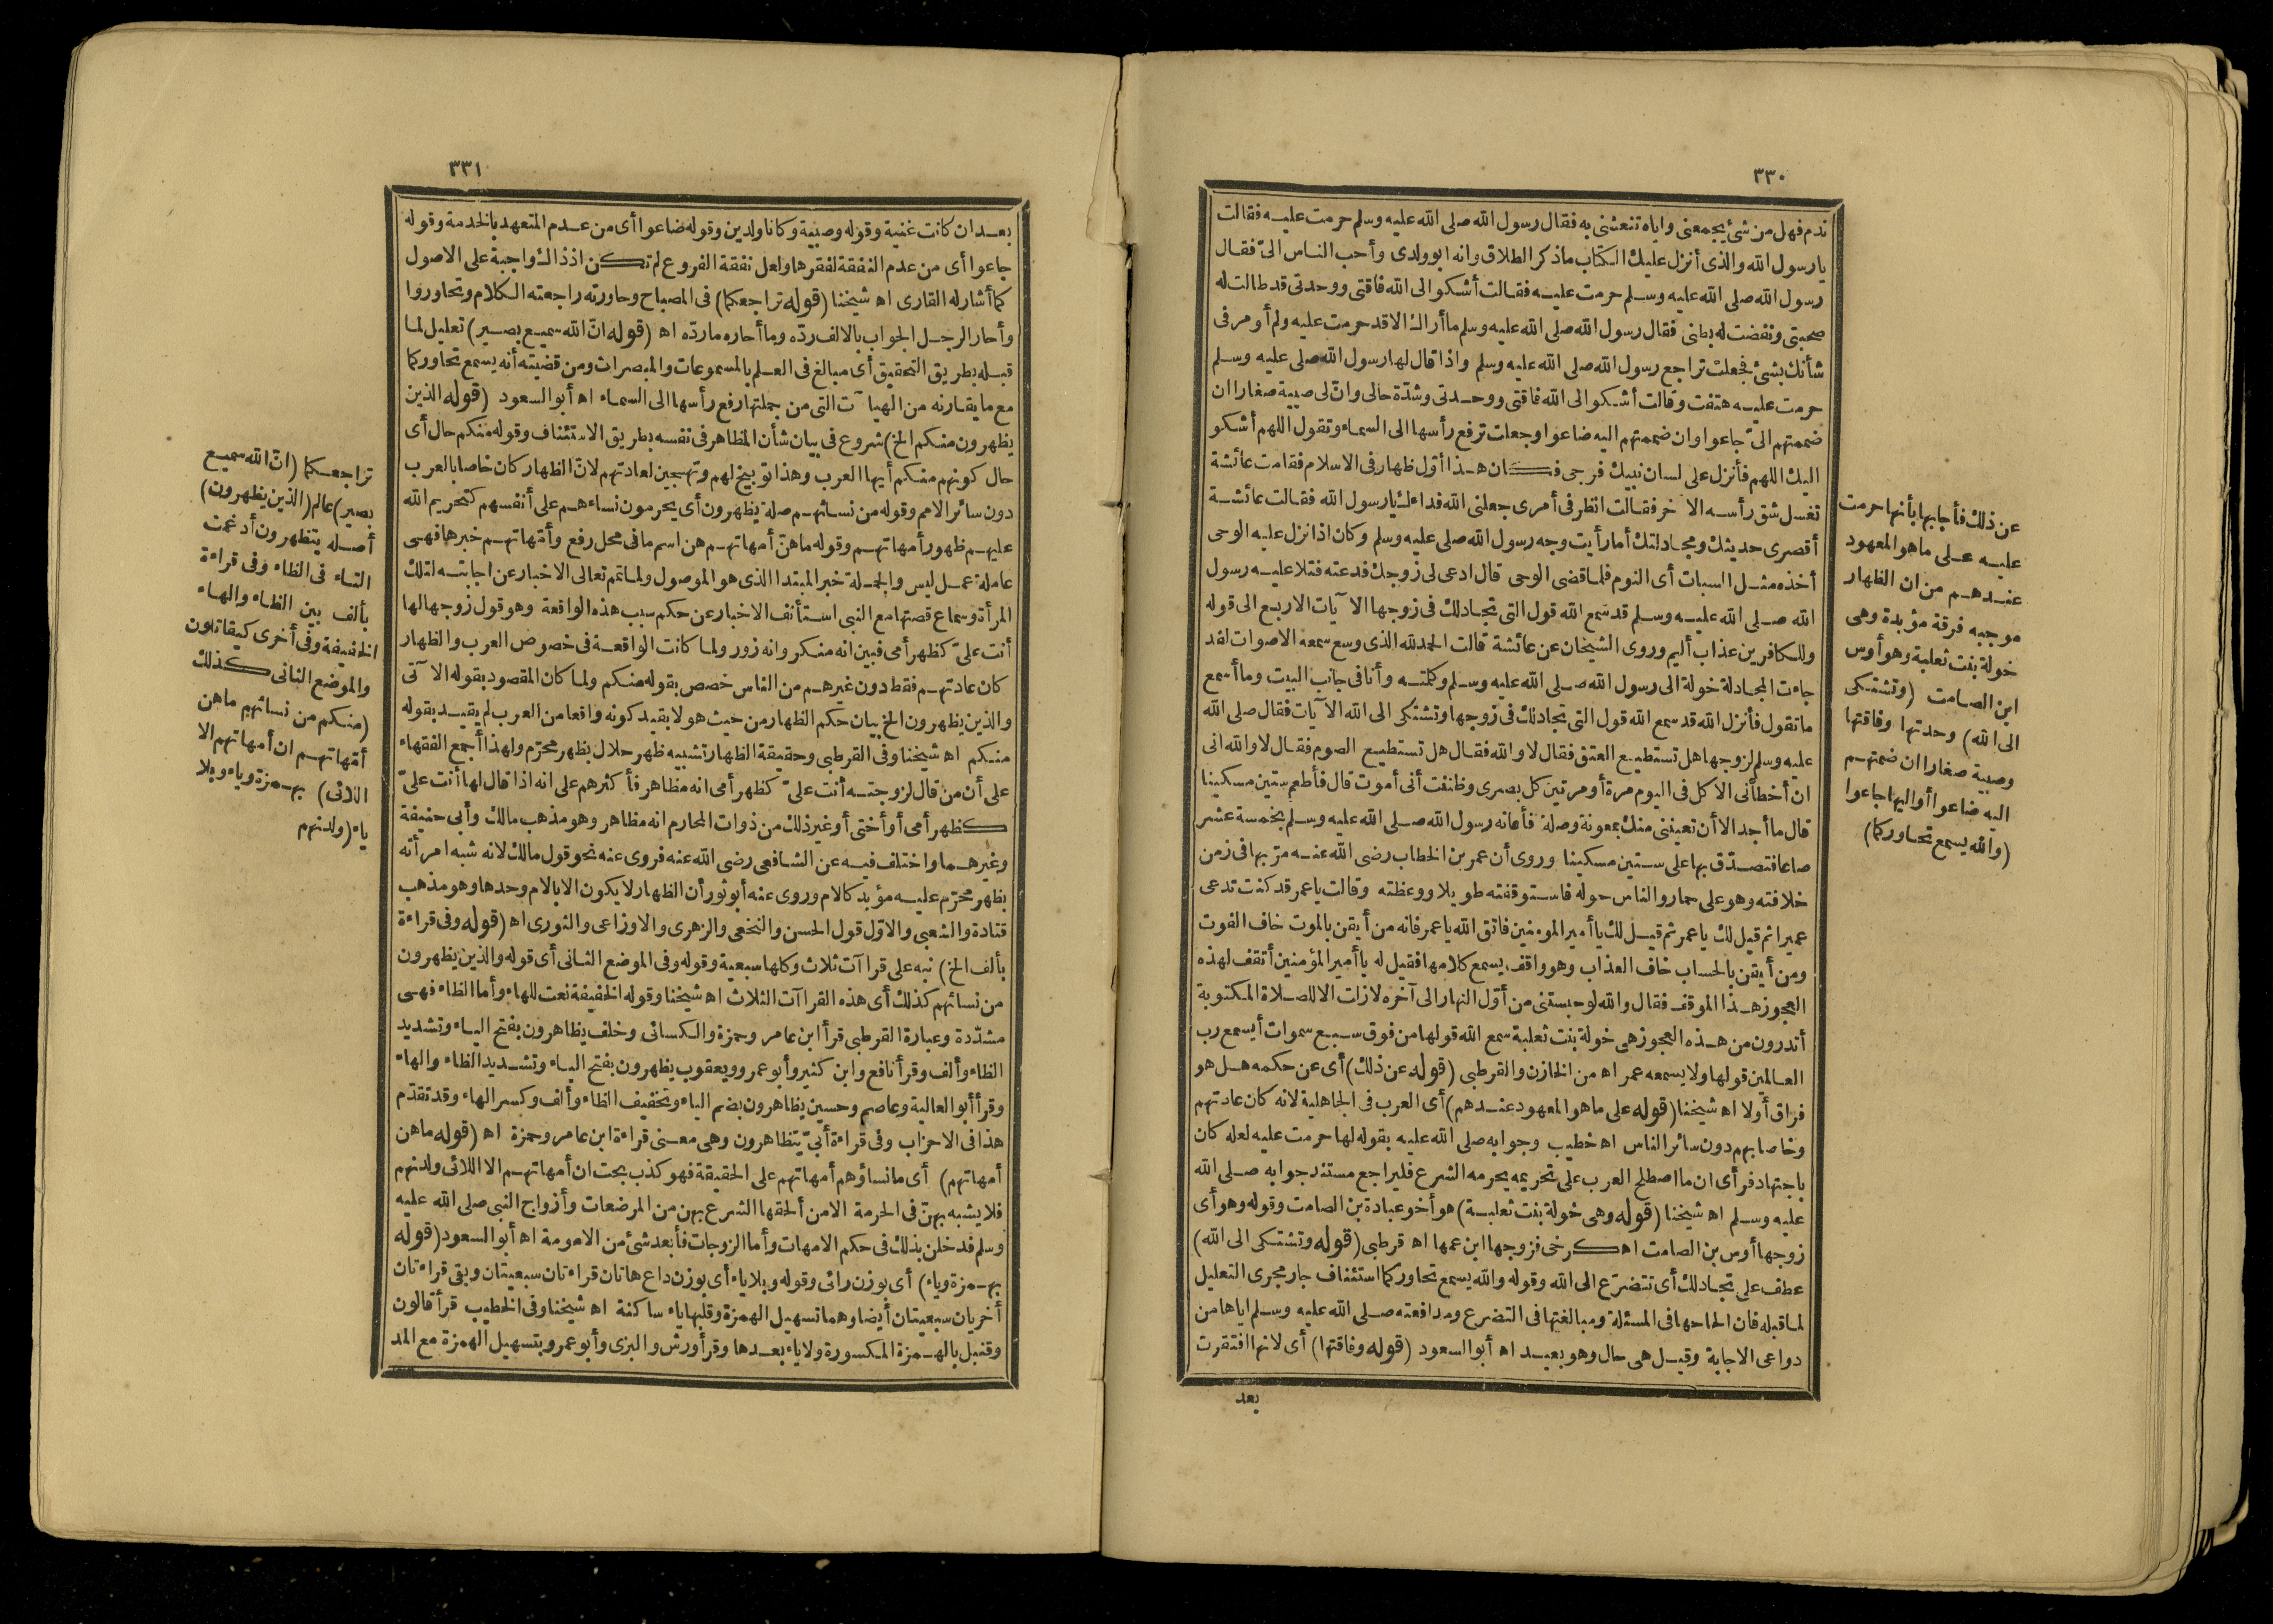 ٣٣٠
ندم فهل من شئ يجمعنى واياه تنعشنى به فقال رسول الله صلى الله عليه وسلم حرمت عليه فقالت
يا رسول الله والذى أنزل عليك الكتاب ماذكر الطلاق وانه ابو ولدى وأحب الناس الىّ فقال
رسول الله صلى الله عليه وسلم حرمت عليه فقالت أشكو الى الله فاقتى ووحدتى قد طالت له
صحبتى ونفضت له بطنى فقال رسول الله صلى الله عليه وسلم ما أراك الا قد حرمت عليه ولم أومر فى
شأنك بشئ فجعلت تراجع رسول الله صلى الله عليه وسلم واذا قال لها رسول الله صلى عليه وسلم
حرمت عليه هتفت وقالت أشكو الى الله فاقتى ووحدتى وشدّة حالى وانّ لى صبية صغارا ان
ضممتهم الىّ جاعوا وان ضممتهم اليه ضاعوا وجعلت ترفع رأسها الى السماء وتقول اللهم أشكو
اليك اللهم فأنزل على لسان نبيك فرجى فكان هذا أوّل ظهار فى الاسلام فقامت عائشة
تغسل شق رأسه الآخر فقالت انظر فى أمرى جعلنى الله فداءك يا رسول الله فقالت عائشة
أقصرى حديثك ومجادلتك أما رأيت وجه رسول الله صلى الله عليه وسلم وكان اذا نزل عليه الوحى
أخذه مثل السبات أى النوم فلما قضى الوحى قال ادعى لى زوجك فدعته فتلا عليه رسول
الله صلى الله عليه وسلم قد سمع الله قول التى تجادلك فى زوجها الآيات الاربع الى قوله
وللكافرين عذاب أليم وروى الشيخان عن عائشة قالت الحمد لله الذى وسع سمعه الاصوات لقد
جاءت المجادلة خولة الى رسول الله صلى الله عليه وسلم وكلمته وأنا فى جانب البيت وما أسمع
ما تقول فأنزل الله قد سمع الله قول التى تجادلك فى زوجها وتشتكى الى الله الآيات فقال صلى الله
عليه وسلم لزوجها هل تستطيع العتق فقال لا والله فقال هل تستطيع الصوم فقال لا والله انى
ان أخطأنى الاكل فى اليوم مرة أو مرتين كل بصرى وظننت أنى أموت قال فأطعم ستين مسكينا
قال ما أجد الا أن تعيننى منك بمعونة وصلة فأعانه رسول الله صلى الله عليه وسلم بخمسة عشر
صاعا فتصدّق بها على ستين مسكينا وروى أن عمر بن الخطاب رضى الله عنه مرّ بها فى زمن
خلافته وهو على حمار والناس حوله فاستوقفته طويلا ووعظته وقالت يا عمر قد كنت تدعى
عميرا ثم قيل لك يا عمر ثم قيل لك يا أمير المؤمنين فاتق الله يا عمر فانه من أيقن بالموت خاف الفوت
ومن أيقن بالحساب خاف العذاب وهو واقف يسمع كلامها فقيل له يا أمير المؤمنين أتقف لهذه
العجوز هذا الموقف فقال والله لو حبستنى من أوّل النهار الى آخره لازلت الا للصلاة المكتوبة
أتدرون من هذه العجوز هى خولة بنت ثعلبة سمع الله قولها من فوق سبع سموات أيسمع رب
العالمين قولها ولا يسمعه عمر اه من الخازن والقرطبى (قوله عن ذلك) أى عن حكمه هل هو
فراق أولا اه شيخنا (قوله على ما هو المعهود عندهم) أى العرب فى الجاهلية لانه كان عادتهم
وخاصا بهم دون سائر الناس اه خطيب وجوابه صلى الله عليه بقوله لها حرمت عليه لعله كان
باجتهاد فرأى ان ما اصطلح العرب على تحريمه يحرمه الشرع فليراجع مستند جوابه صلى الله
عليه وسلم اه شيخنا (قوله وهى خولة بنت ثعلبة) هو أخو عبادة بن الصامت وقوله وهو أى
زوجها أوس بن الصامت اه كرخى فزوجها ابن عمها اه قرطبى (قوله وتشتكى الى الله)
عطف على تجادلك أى تتضرّع الى الله وقوله والله يسمع تحاوركما استئناف جار مجرى التعليل
لما قبله فان الحاحها فى المسئلة ومبالغتها فى التضرع ومدافعته صلى الله عليه وسلم اياها من
دواعى الاجابة وقيل هى حال وهو بعيد اه أبو السعود (قوله وفاقتها) أى لانها افتقرت
بعد
عن ذلك فأجابها بأنها حرمت
عليه على ما هو المعهود
عندهم من ان الظهار
موجبه فرقة مؤبدة وهى
خولة بنت ثعلبة وهو أوس
ابن الصامت (وتشتكى
الى الله) وحدتها وفاقتها
وصبية صغارا ان ضمتهم
اليه ضاعوا أو اليها جاعوا
(والله يسمع تحاوركما)
٣٣١
بعد ان كانت غنية وقوله وصبية وكانا ولدين وقوله ضاعوا أى من عدم المتعهد بالخدمة وقوله
جاعوا أى من عدم النفقة لفقرها ولعل نفقة الفروع لم تكن اذ ذاك واجبة على الاصول
كما أشار له القارى اه شيخنا (قوله تراجعكما) فى المصباح وحاورته راجعته الكلام وتحاوروا
وأحار الرجل الجواب بالالف ردّه وما أحاره ما ردّه اه (قوله انّ الله سميع بصير) تعليل لما
قبله بطريق التحقيق أى مبالغ فى العلم بالمسموعات والمبصرات ومن قضيته أنه يسمع تحاوركما
مع ما يقارنه من الهيآت التى من جملتها رفع رأسها الى السماء اه أبو السعود (قوله الذين
يظهرون منكم الخ) شروع فى بيان شأن المظاهر فى نفسه بطريق الاستئناف وقوله منكم حال أى
حال كونهم منكم أيها العرب وهذا توبيخ لهم وتهجين لعادتهم لانّ الظهار كان خاصا بالعرب
دون سائر الامم وقوله من نسائهم صلة يظهرون أى يحرمون نساءهم على أنفسهم كتحريم الله
عليهم ظهور أمهاتهم وقوله ما هنّ أمهاتهم هن اسم ما فى محل رفع وأمّهاتهم خبرها فهى
عاملة عمل ليس والجملة خبر المبتدا الذى هو الموصول ولما تم تعالى الاخبار عن اجابته لتلك
المرأة وسماع قصتها مع النبى استأنف الاخبار عن حكم سبب هذه الواقعة وهو قول زوجها لها
أنت علىّ كظهر أمى فبين انه منكر وانه زور ولما كانت الواقعة فى خصوص العرب والظهار
كان عادتهم فقط دون غيرهم من الناس خصص بقوله منكم ولما كان المقصود بقوله الآتى
والذين يظهرون الخ بيان حكم الظهار من حيث هو لا بقيد كونه واقعا من العرب لم يقيد بقوله
منكم اه شيخنا وفى القرطبى وحقيقة الظهار تشبيه ظهر حلال بظهر محرّم ولهذا أجمع الفقهاء
على أن من قال لزوجته أنت علىّ كظهر أمى انه مظاهر فأكثرهم على انه اذا قال لها أنت علىّ
كظهر أمى أو أختى أو غير ذلك من ذوات المحارم انه مظاهر وهو مذهب مالك وأبى حنيفة
وغيرهما واختلف فيه عن الشافعى رضى الله عنه فروى عنه نحو قول مالك لانه شبه امرأته
بظهر محرّم عليه مؤبد كالام وروى عنه أبو ثور أن الظهار لا يكون الا بالام وحدها وهو مذهب
قتادة والشعبى والاوّل قول الحسن والنخعى والزهرى والاوزاعى والثورى اه (قوله وفى قراءة
بألف الخ) نبه على قراآت ثلاث وكلها سبعية وقوله وفى الموضع الثانى أى قوله والذين يظهرون
من نسائهم كذلك أى هذه القراآت الثلاث اه شيخنا وقوله الخفيفة نعت للهاء وأما الظاء فهى
مشدّدة وعبارة القرطبى قرأ ابن عامر وحمزة والكسائى وخلف يظاهرون بفتح الياء وتشديد
الظاء وألف وقرأ نافع وابن كثير وأبو عمرو ويعقوب يظهرون بفتح الياء وتشديد الظاء والهاء
وقرأ أبو العالية وعاصم وحسين يظاهرون بضم الياء وتخفيف الظاء وألف وكسر الهاء وقد تقدّم
هذا فى الاحزاب وفى قراءة أبىّ يتظاهرون وهى معنى قراءة ابن عامر وحمزة اه (قوله ما هن
أمهاتهم) أى ما نساؤهم أمهاتهم على الحقيقة فهو كذب بحت ان أمهاتهم الا اللائى ولدنهم
فلا يشبه بهنّ فى الحرمة الا من ألحقها الشرع بهن من المرضعات وأزواج النبى صلى الله عليه
وسلم فدخلن بذلك فى حكم الامهات وأما الزوجات فأبعد شئ من الامومة اه أبو السعود (قوله
بهمزة وياء) أى بوزن رائى وقوله وبلا ياء أى بوزن داع هاتان قراءتان سبعيتان وبقى قراءتان
أخريان سبعيتان أيضا وهما تسهيل الهمزة وقلبها ياء ساكنة اه شيخنا وفى الخطيب قرأ قالون
وقنبل بالهمزة المكسورة ولا ياء بعدها وقرأ ورش والبزى وأبو عمرو بتسهيل الهمزة مع المد
تراجعكما (انّ الله سميع
بصير) عالم (الذين يظهرون)
أصله يتظهرون أدغمت
التاء فى الظاء وفى قراءة
بألف بين الظاء والهاء
الخفيفة وفى أخرى كيقاتلون
والموضع الثانى كذلك
(منكم من نسائهم ما هن
أمّهاتهم ان أمهاتهم الا
اللائى) بهمزة وياء وبلا
ياء (ولدنهم